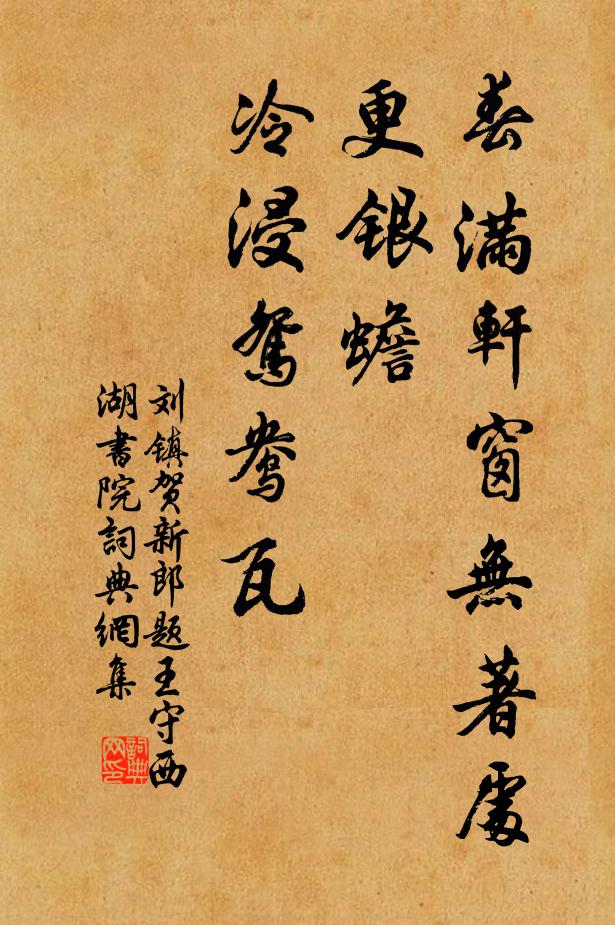 春滿軒窗無著處
更銀蟾
冷浸鴛鴦瓦
刘镇贺新郎题王守西
湖書院詞典網集
詞典
网印